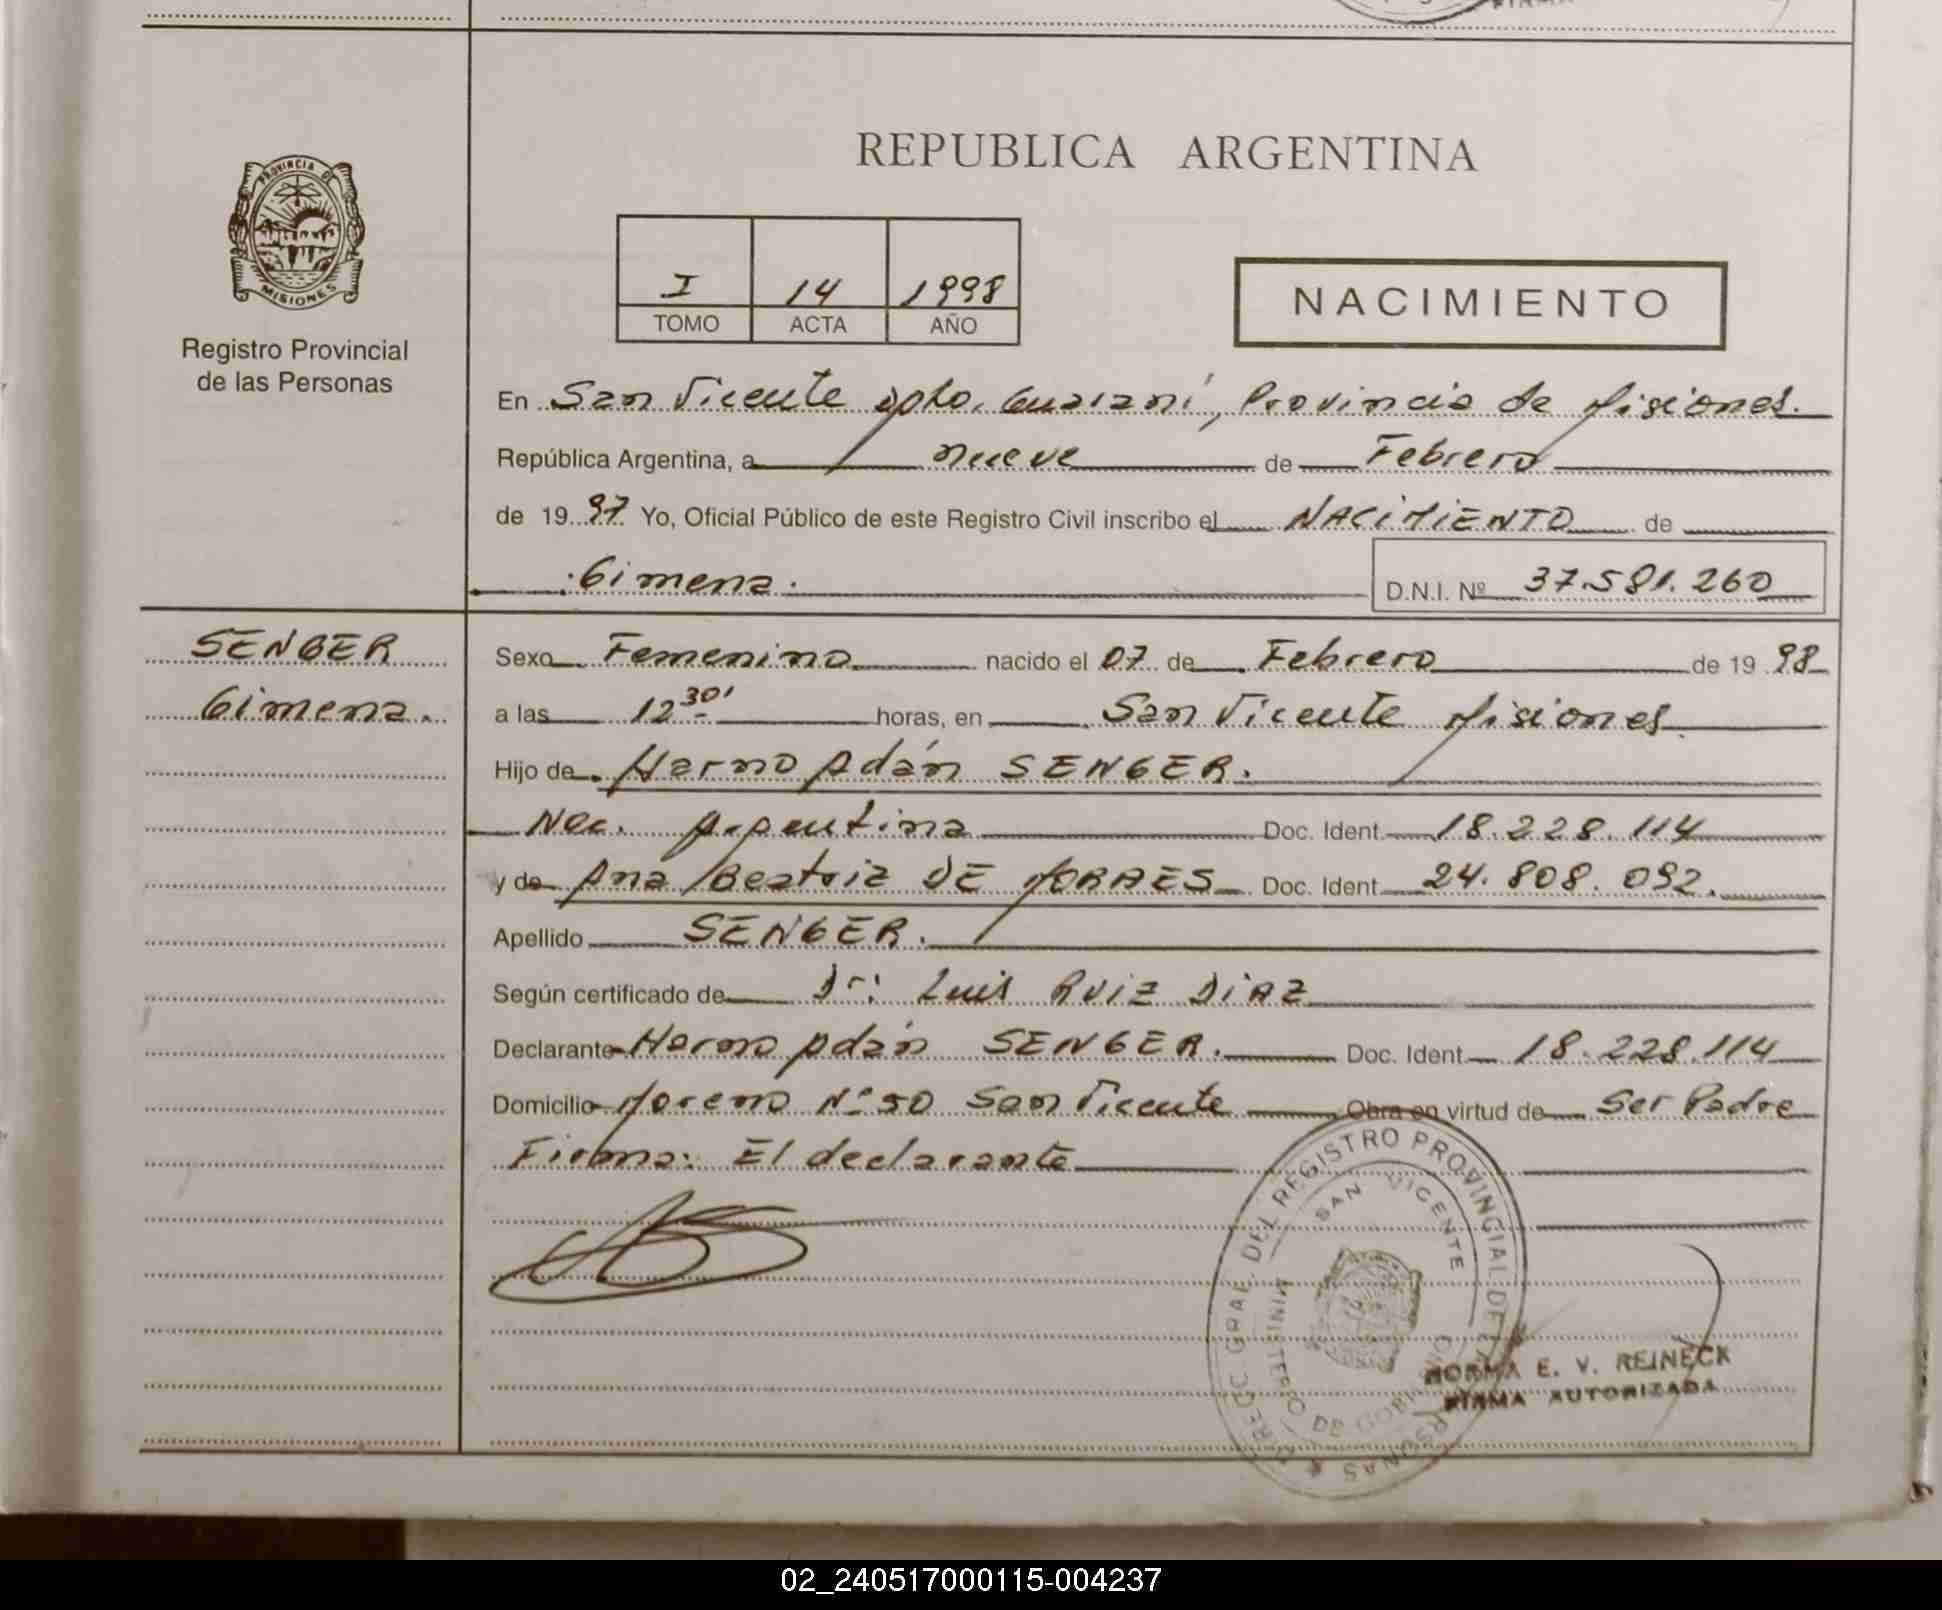 REPUBLICA ARGENTINA
PROVINCIA DE
MISIONES
Registro Provincial
de las Personas
I 14 1998
TOMO ACTA AÑO
NACIMIENTO
En San Vicente Dpto. Guaraní, Provincia de Misiones.
República Argentina, a nueve de Febrero
de 1997 Yo, Oficial Público de este Registro Civil inscribo el NACIMIENTO de
Gimena. D.N.I. Nº 37.581.260
SENGER
Gimena.
Sexo Femenino nacido el 07 de Febrero de 1998
a las 12 30' horas, en San Vicente Misiones
Hijo de Harno Adán SENGER.
Nac. Argentina Doc. Ident. 18.228.114
y de Ana Beatriz DE MORAES Doc. Ident. 24.808.092.
Apellido SENGER.
Según certificado de Dr: Luis Ruiz DiAZ
Declarante Harno Adán SENGER. Doc. Ident. 18.228.114
Domicilio Moreno Nº 50 San Vicente Obra en virtud de Ser Padre
Firma: El declarante
DEL REGISTRO PROVINCIAL DE
SAN VICENTE
NORMA E. V. REINECK
FIRMA AUTORIZADA
02_240517000115-004237